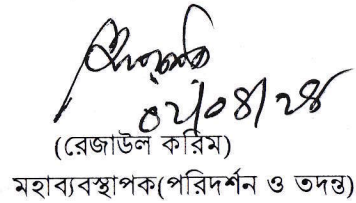 ০২/০৪/২৪
(রেজাউল করিম)
মহাব্যবস্থাপক(পরিদর্শন ও তদন্ত)